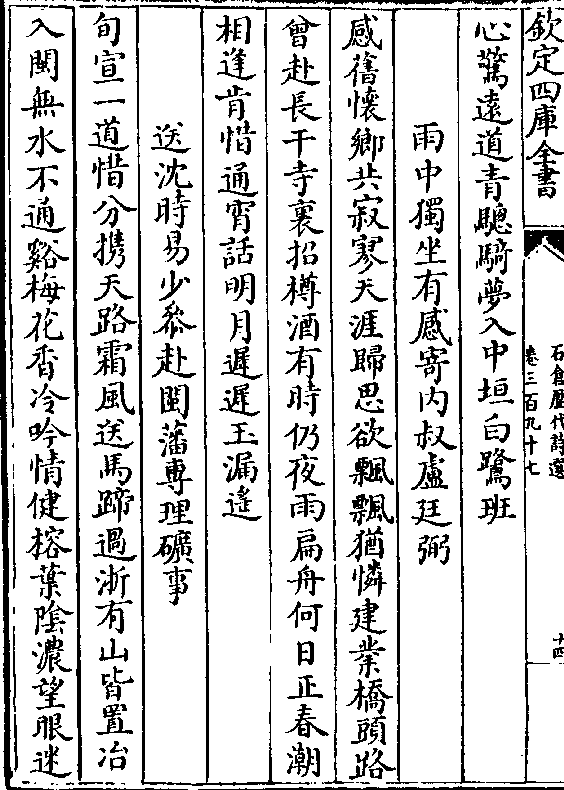 欽定四庫全書
石倉歷代詩選
卷三百九十七
十四
心驚遠道青驄騎夢入中垣白鷺班
雨中獨坐有感寄内叔盧廷弼
感舊懷鄉共寂寥天涯歸思欲飄飄猶憐建業橋頭路
曾赴長干寺裏招樽酒有時仍夜雨扁舟何日正春潮
相逢肯惜通宵話明月遲遲玉漏遙
送沈時易少叅赴閩藩專理礦事
旬宣一道惜分攜天路霜風送馬蹄過浙有山皆置冶
入閩無水不通谿梅花香冷吟情健榕葉陰濃望眼迷